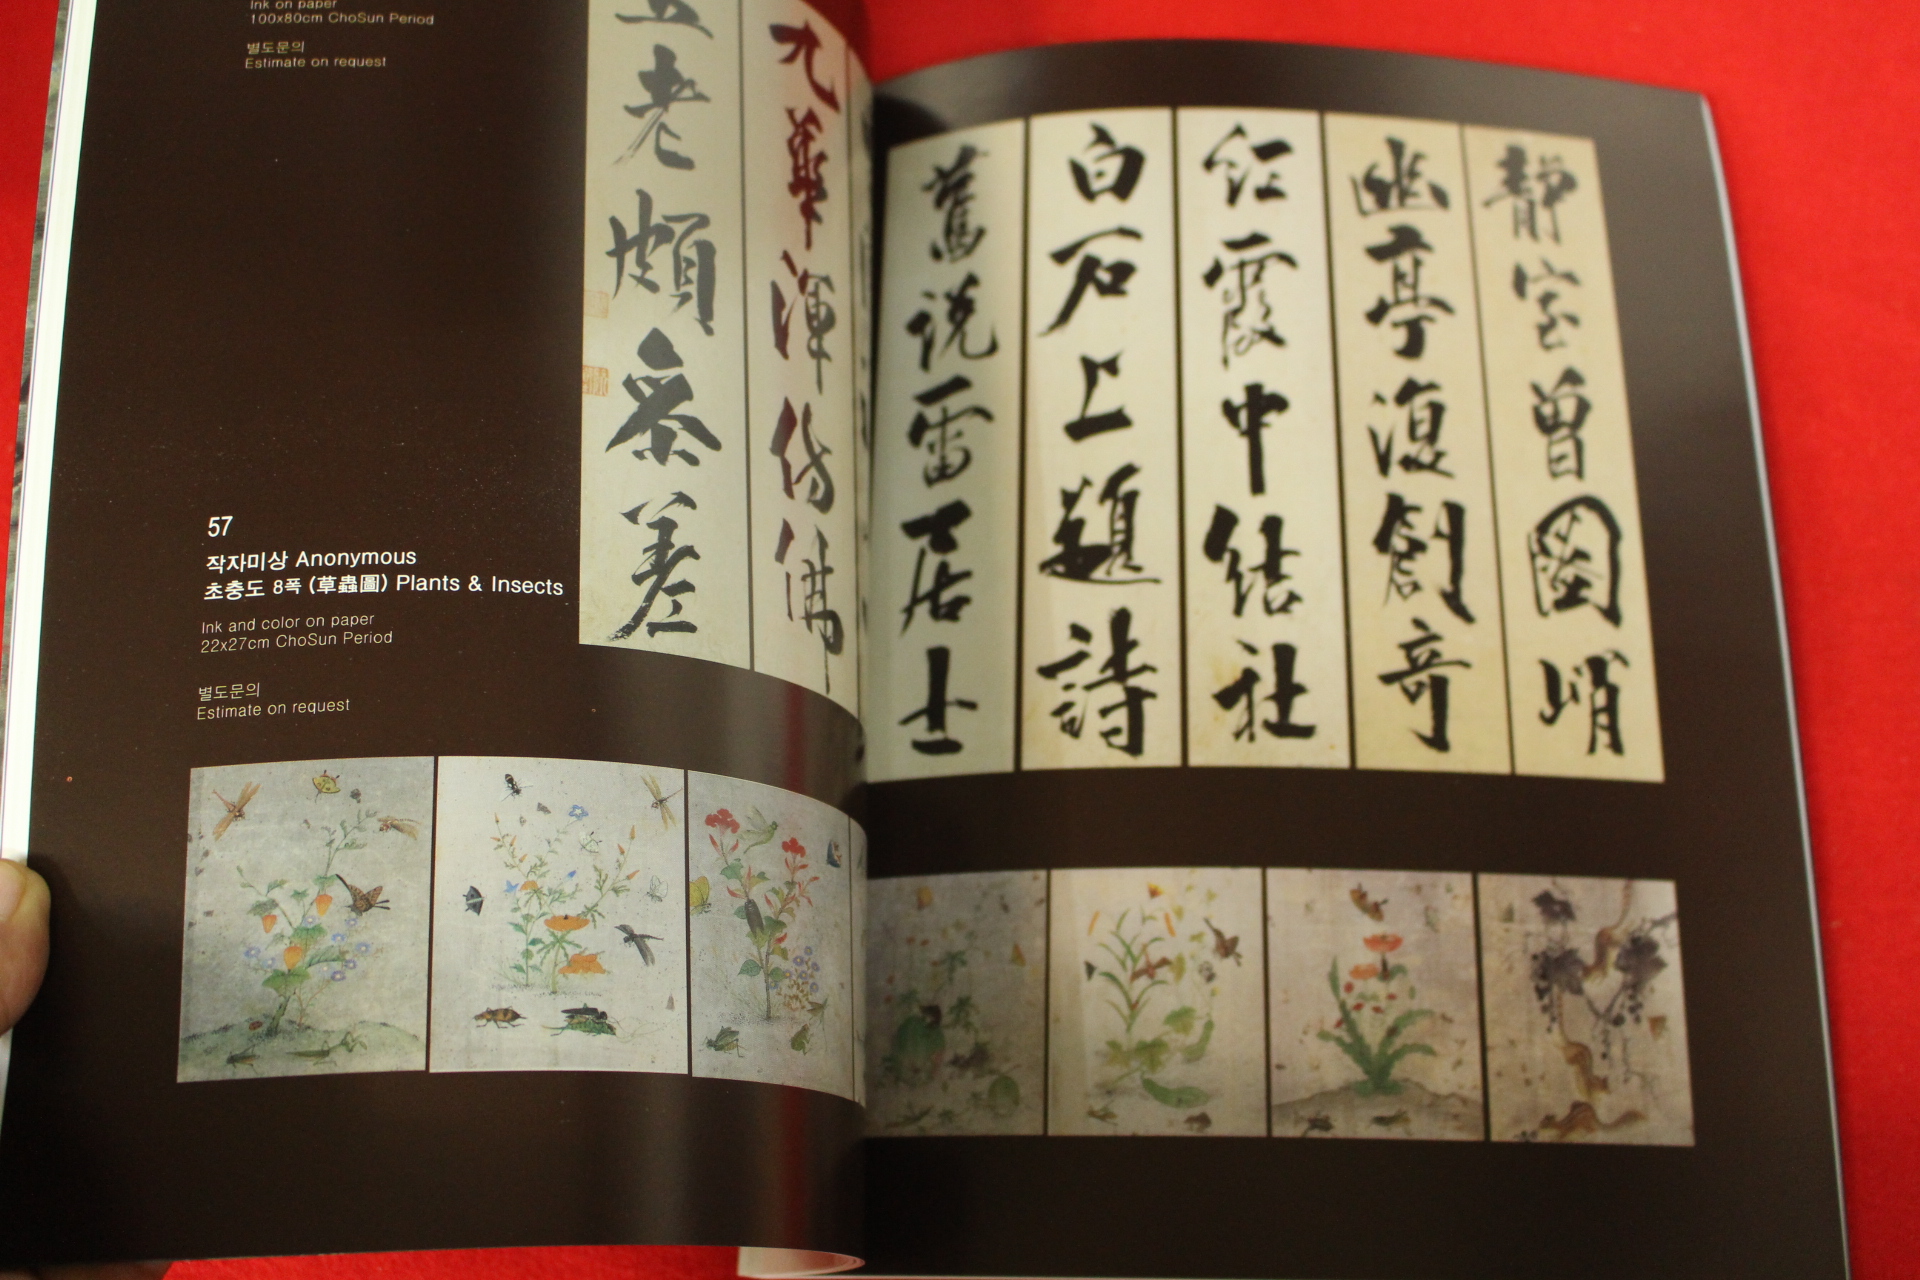 Ink on paper
100x80cm ChoSun Period
별도문의
Estimate on request
57
작자미상 Anonymous
초충도 8폭 (草蟲圖) Plants & Insects
Ink and color on paper
22x27cm ChoSun Period
별도문의
Estimate on request
靜室曾圖峭
幽亭復創奇
紅霞中結社
白石上題詩
舊說雷居士
九華渾彷彿
五老頗參差